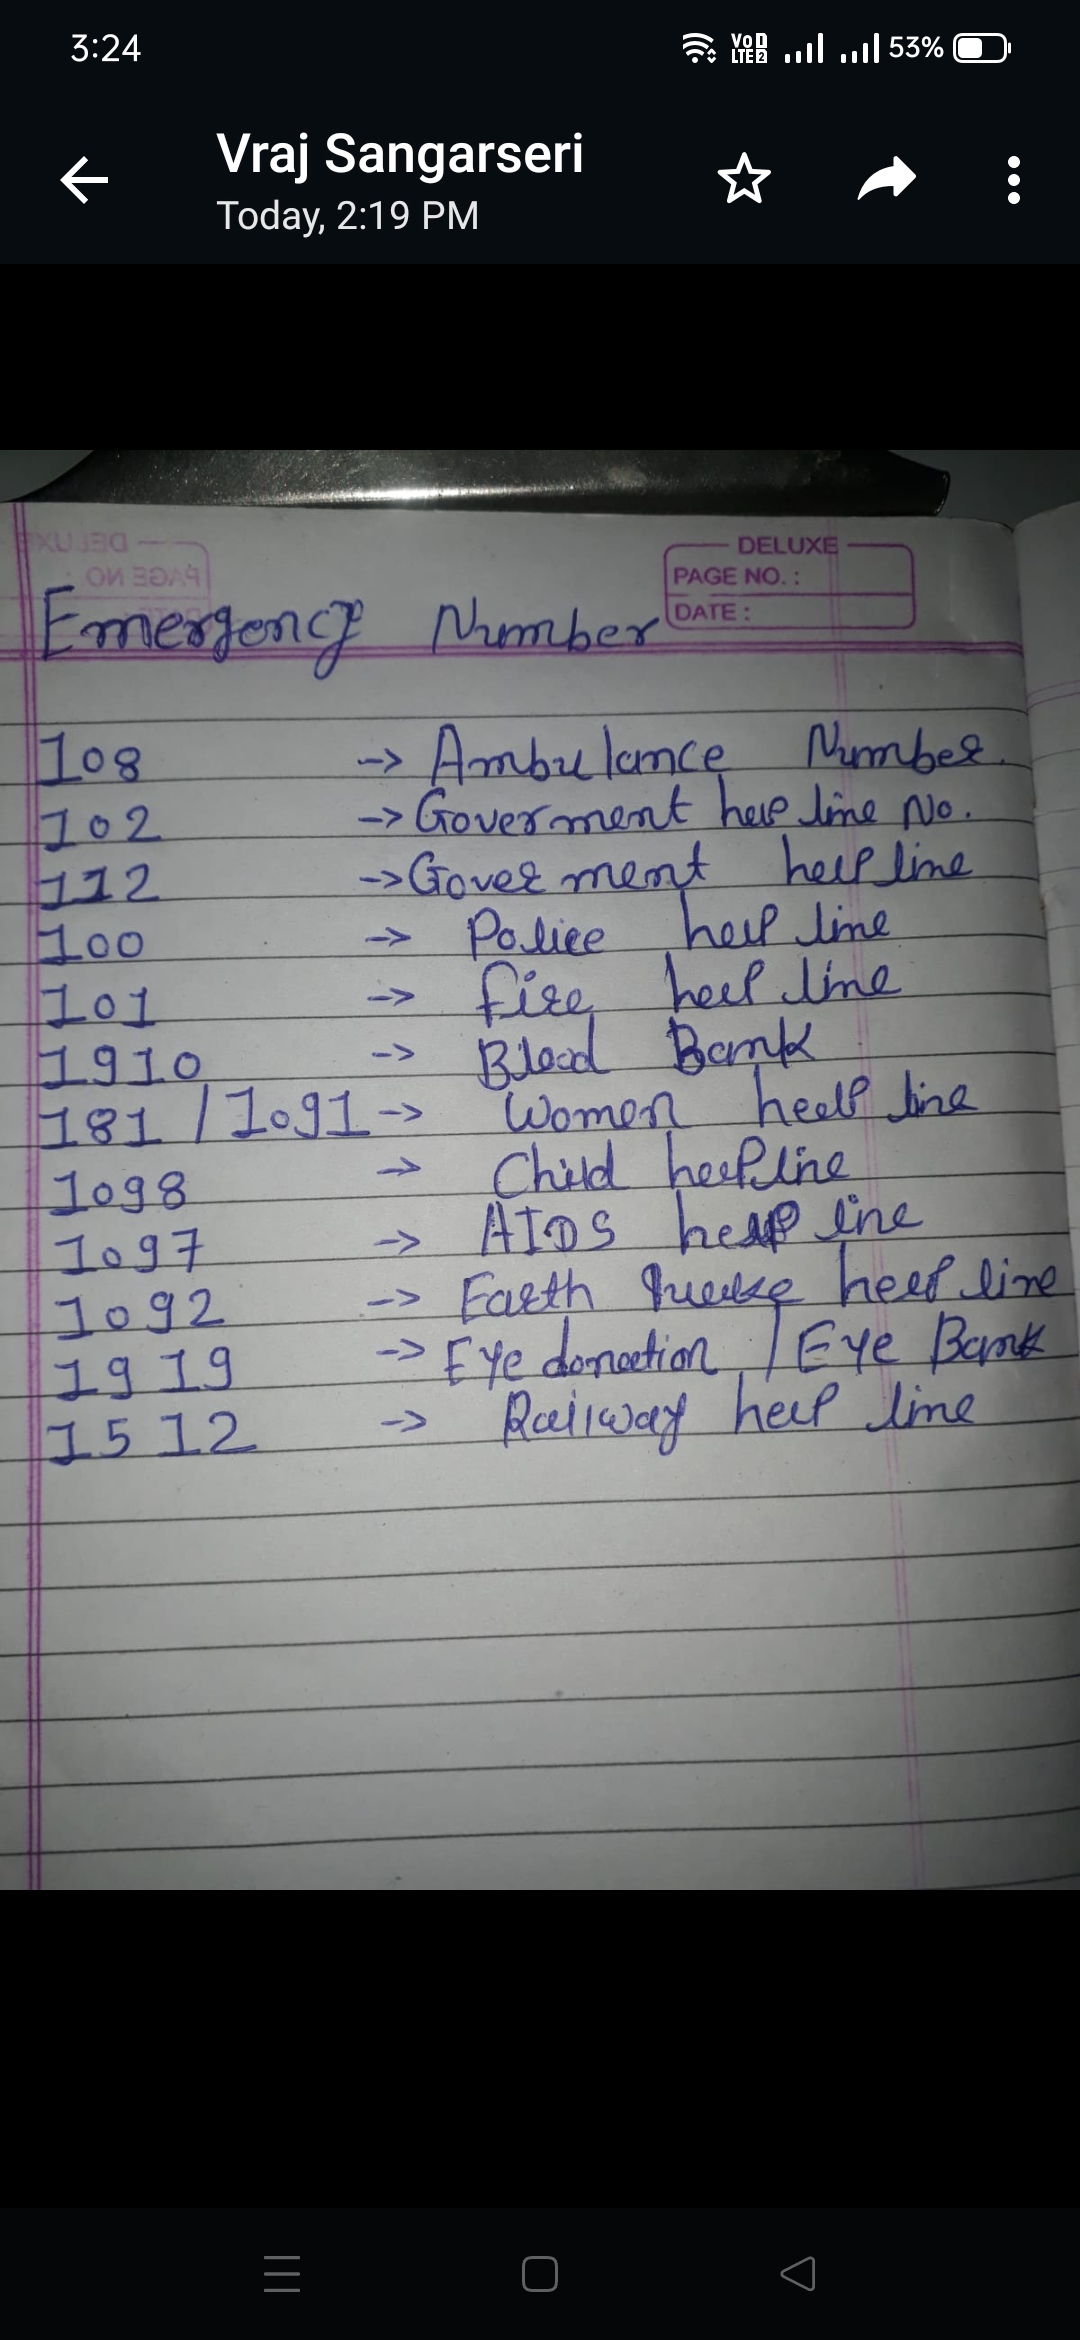 3:24
Vo LTE 53%
Vraj Sangarseri
Today, 2:19 PM
DELUXE
PAGE NO. :
DATE :
Emergency Number
108 -> Ambulance Number.
102 -> Goverment help line No.
112 -> Goverment help line
100 -> Police help line
101 -> fire help line
1910 -> Blood Bank
181 / 1091 -> Women help line
1098 -> Child helpline
1097 -> AIDS help line
1092 -> Earth help line
1919 -> Eye donation / Eye Bank
1512 -> Railway help line